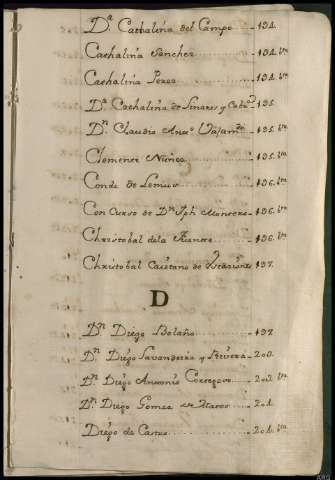 Dª Cathalina del Campo 194.
Cathalina Sanchez 194. vta
Cathalina Perez 194. vta
Dª Cathalina de Linares y 195.
Dn Claudio Anto 195. vta
Clemente Nuñez 195. vta
Conde de Lemus 196. vta
Concurso de Dn Jph 196. vta
Christobal dela Fuente 196. vta
Christobal Caietano de 197.
D
Dn Diego Bolaño 199
Dn Diego Savandera y Rivera 200.
Dn Diego Antonio 200. vta
Dn Diego Gomez de 201.
Diego de Castro 201. vta